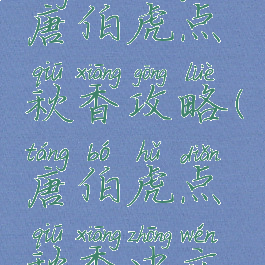 唐伯虎点
qiū xiāng gōng lüè
秋香攻略(
táng bó hǔ diǎn
唐伯虎点
qiū xiāng zhōng wén